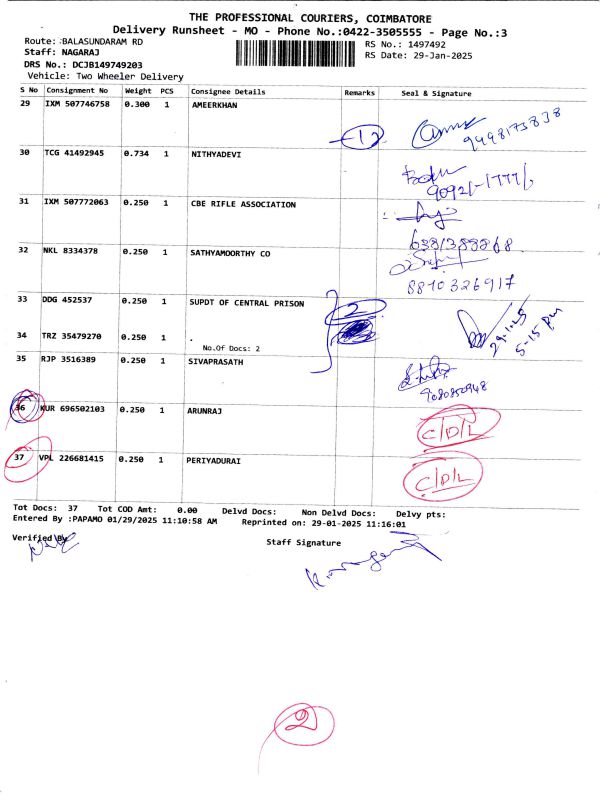 THE PROFESSIONAL COURIERS, COIMBATORE
Delivery Runsheet - MO - Phone No.:0422-3505555 - Page No.:3
Route: BALASUNDARAM RD
RS No.: 1497492
Staff: NAGARAJ
RS Date: 29-Jan-2025
DRS No.: DCJB149749203
Vehicle: Two Wheeler Delivery
S No Consignment No Weight PCS Consignee Details Remarks Seal & Signature
29 IXM 507746758 0.300 1 AMEERKHAN
1
9498173838
30 TCG 41492945 0.734 1 NITHYADEVI
31 IXM 507772063 0.250 1 CBE RIFLE ASSOCIATION
32 NKL 8334378 0.250 1 SATHYAMOORTHY CO
8810326917
33 DDG 452537 0.250 1 SUPDT OF CENTRAL PRISON
2
29.1.25
5-15 pm
34 TRZ 35479270 0.250 1 .
No.Of Docs: 2
35 RJP 3516389 0.250 1 SIVAPRASATH
9080850948
36 KUR 696502103 0.250 1 ARUNRAJ
C/D/L
37 VPL 226681415 0.250 1 PERIYADURAI
C/D/L
Tot Docs: 37 Tot COD Amt: 0.00 Delvd Docs: Non Delvd Docs: Delvy pts:
Entered By :PAPAMO 01/29/2025 11:10:58 AM Reprinted on: 29-01-2025 11:16:01
Verified By
Staff Signature
2